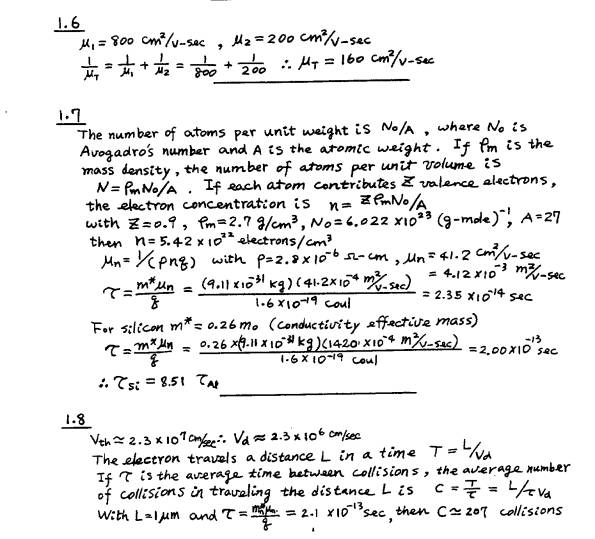 1.6
μ₁ = 800 cm²/v-sec , μ₂ = 200 cm²/v-sec
1/μT = 1/μ₁ + 1/μ₂ = 1/800 + 1/200 ∴ μT = 160 cm²/v-sec
1.7
The number of atoms per unit weight is No/A , where No is
Avogadro's number and A is the atomic weight. If ρm is the
mass density, the number of atoms per unit volume is
N = ρmNo/A . If each atom contributes Z valence electrons,
the electron concentration is n = ZρmNo/A
with Z=0.9, ρm=2.7 g/cm³, No=6.022 x10²³ (g-mole)⁻¹, A=27
then n=5.42 x 10²² electrons/cm³
μn = 1/(ρnq) with ρ=2.8 x 10⁻⁶ Ω-cm, μn=41.2 cm²/v-sec
= 4.12 x 10⁻³ m²/v-sec
τ = m*μn/q = (9.11 x 10⁻³¹ kg)(41.2 x 10⁻⁴ m²/v-sec)/1.6 x 10⁻¹⁹ coul = 2.35 x 10⁻¹⁴ sec
For silicon m* = 0.26 mo (conductivity effective mass)
τ = m*μn/q = 0.26 x (9.11 x 10⁻³¹ kg)(1420 x 10⁻⁴ m²/v-sec)/1.6 x 10⁻¹⁹ coul = 2.00 x 10⁻¹³ sec
∴ τSi = 8.51 τAl
1.8
Vth ≃ 2.3 x 10⁷ cm/sec ∴ Vd ≈ 2.3 x 10⁶ cm/sec
The electron travels a distance L in a time T = L/Vd
If τ is the average time between collisions, the average number
of collisions in traveling the distance L is C = T/τ = L/τVd
With L=1μm and τ = m*nμn/q = 2.1 x10⁻¹³ sec, then C ≃ 207 collisions